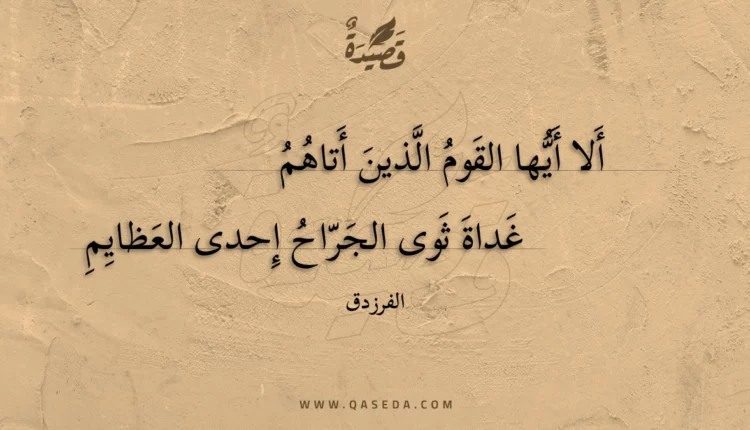 قَصِيدَةٌ
أَلا أَيُّها القَومُ الَّذينَ أَتاهُمُ
غَداةَ ثَوى الجَرّاحُ إِحدى العَظايِمِ
الفرزدق
WWW.QASEDA.COM